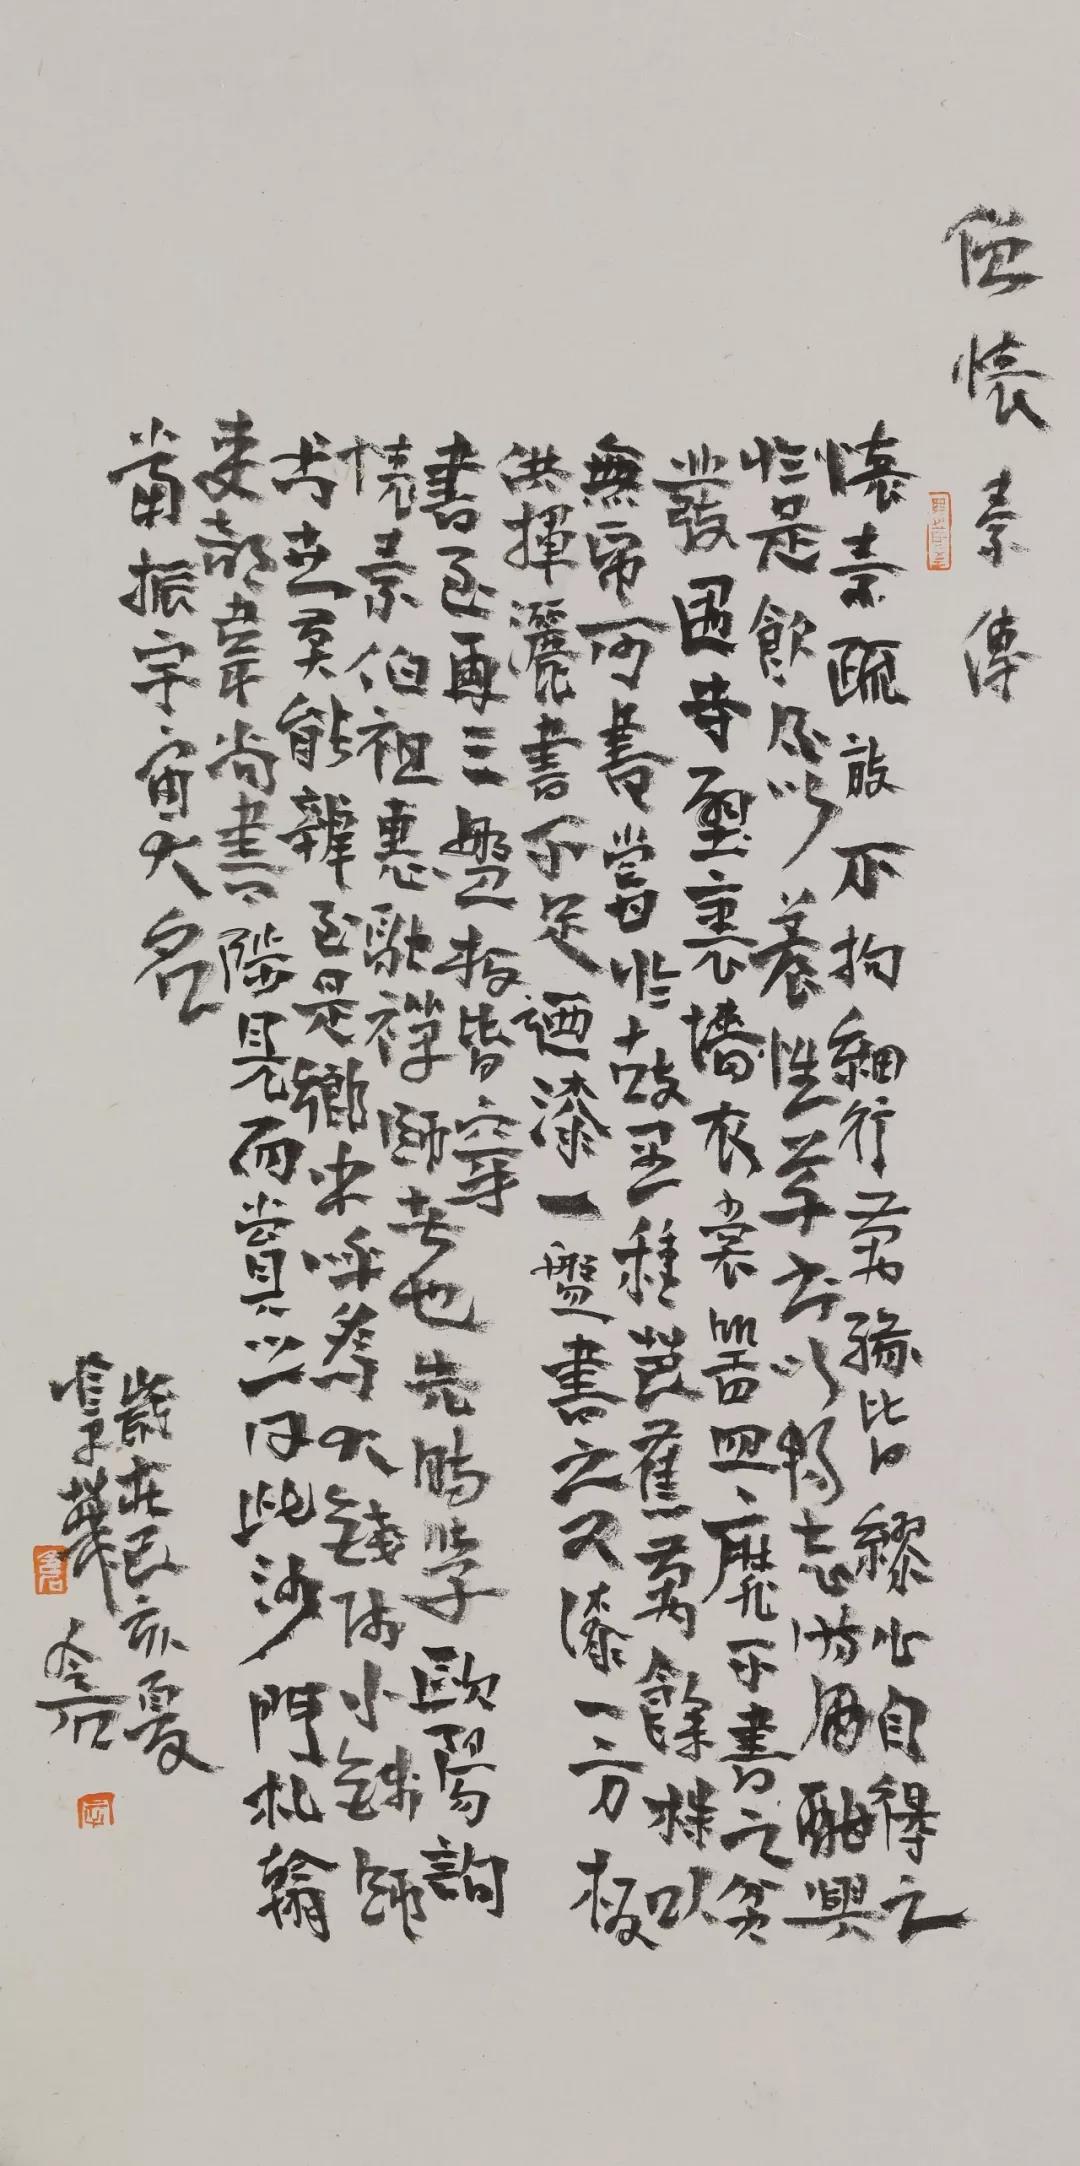 僧懷素傳
懷素疏放不拘細行萬緣皆繆心自得之
於是飲酒以養性草書以暢志時酒酣興
發遇寺壁裏墻衣裳器皿靡不書之貧
無帋可書嘗於故里種芭蕉萬餘株以
供揮灑書不足迺漆一盤書之又漆一方板
書至再三盤板皆穿
懷素伯祖惠融禪師者也先時學歐陽詢
書世莫能辨至是鄉中呼為大錢師小錢師
吏部韋尚書陟見而賞之曰此沙門札翰
當振宇宙大名
歲在己亥夏